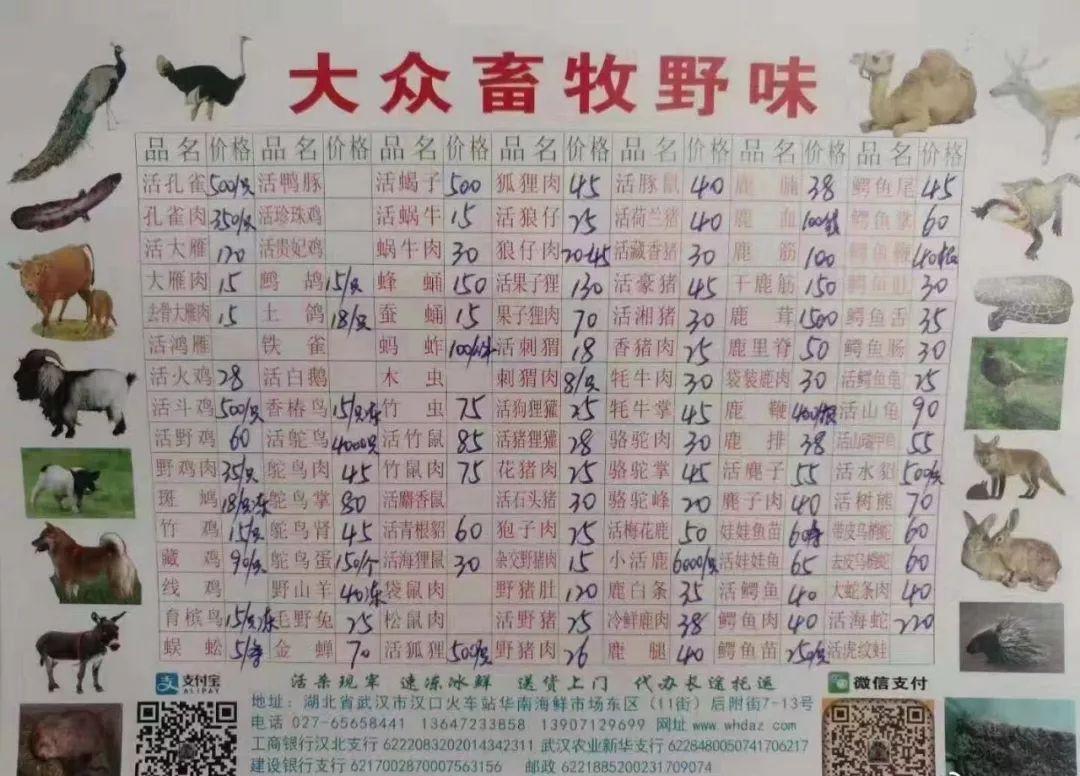 大众畜牧野味
品名 价格 品名 价格 品名 价格 品名 价格 品名 价格 品名 价格 品名 价格
活孔雀 500/只 活鸭豚 活蝎子 500 狐狸肉 45 活豚鼠 40 鹿腩 38 鳄鱼尾 45
孔雀肉 350/只 活珍珠鸡 活蜗牛 15 活狼仔 25 活荷兰猪 40 鹿血 鳄鱼掌 60
活大雁 120 活贵妃鸡 蜗牛肉 30 狼仔肉 20-45 活藏香猪 30 鹿筋 100 鳄鱼鞭
大雁肉 15 鹧鸪 15/只 蜂蛹 150 活果子狸 130 活豪猪 45 干鹿筋 150 鳄鱼肚 30
去骨大雁肉 15 土鸽 18/只 蚕蛹 15 果子狸肉 70 活湘猪 30 鹿茸 1500 鳄鱼舌 35
活鸿雁 铁雀 蚂蚱 活刺猬 18 香猪肉 25 鹿里脊 50 鳄鱼肠 30
活火鸡 28 活白鹅 木虫 刺猬肉 8/只 牦牛肉 30 袋装鹿肉 30 活鳄鱼龟 25
活斗鸡 500/只 香椿鸟 15/只冻 竹虫 75 活狗狸獾 25 牦牛掌 45 鹿鞭 活山龟 90
活野鸡 60 活鸵鸟 4000只 活竹鼠 85 活猪狸獾 28 骆驼肉 30 鹿排 38 55
野鸡肉 35/只 鸵鸟肉 45 竹鼠肉 75 花猪肉 25 骆驼掌 45 活麂子 55 活水貂 500/只
斑鸠 18/只冻 鸵鸟掌 80 活麝香鼠 活石头猪 30 骆驼峰 20 麂子肉 40 活树熊 70
竹鸡 15/只 鸵鸟肾 45 活青根貂 60 狍子肉 25 活梅花鹿 50 娃娃鱼苗 带皮乌梢蛇 60
藏鸡 90/只 鸵鸟蛋 150/个 活海狸鼠 30 杂交野猪肉 15 小活鹿 6000/只 活娃娃鱼 65 去皮乌梢蛇 60
线鸡 野山羊 40冻 袋鼠肉 野猪肚 120 鹿白条 35 活鳄鱼 40 大蛇条肉 40
育槟鸟 15/只冻 毛野兔 25 松鼠肉 活野猪 25 冷鲜鹿肉 38 鳄鱼肉 40 活海蛇 220
蜈蚣 金蝉 70 活狐狸 500/只 野猪肉 26 鹿腿 40 鳄鱼苗 250/只 活虎纹蛙
支付宝 ALIPAY 活杀现宰 速冻冰鲜 送货上门 代办长途托运 微信支付
地址：湖北省武汉市汉口火车站华南海鲜市场东区（11街）后附街7-13号
电话 027-65658441 13647233858 13907129699 网址 www.whdaz.com
工商银行汉北支行 6222083202014342311 武汉农业新华支行 6228480050741706217
建设银行支行 6217002870007563156 邮政 6221885200231709074